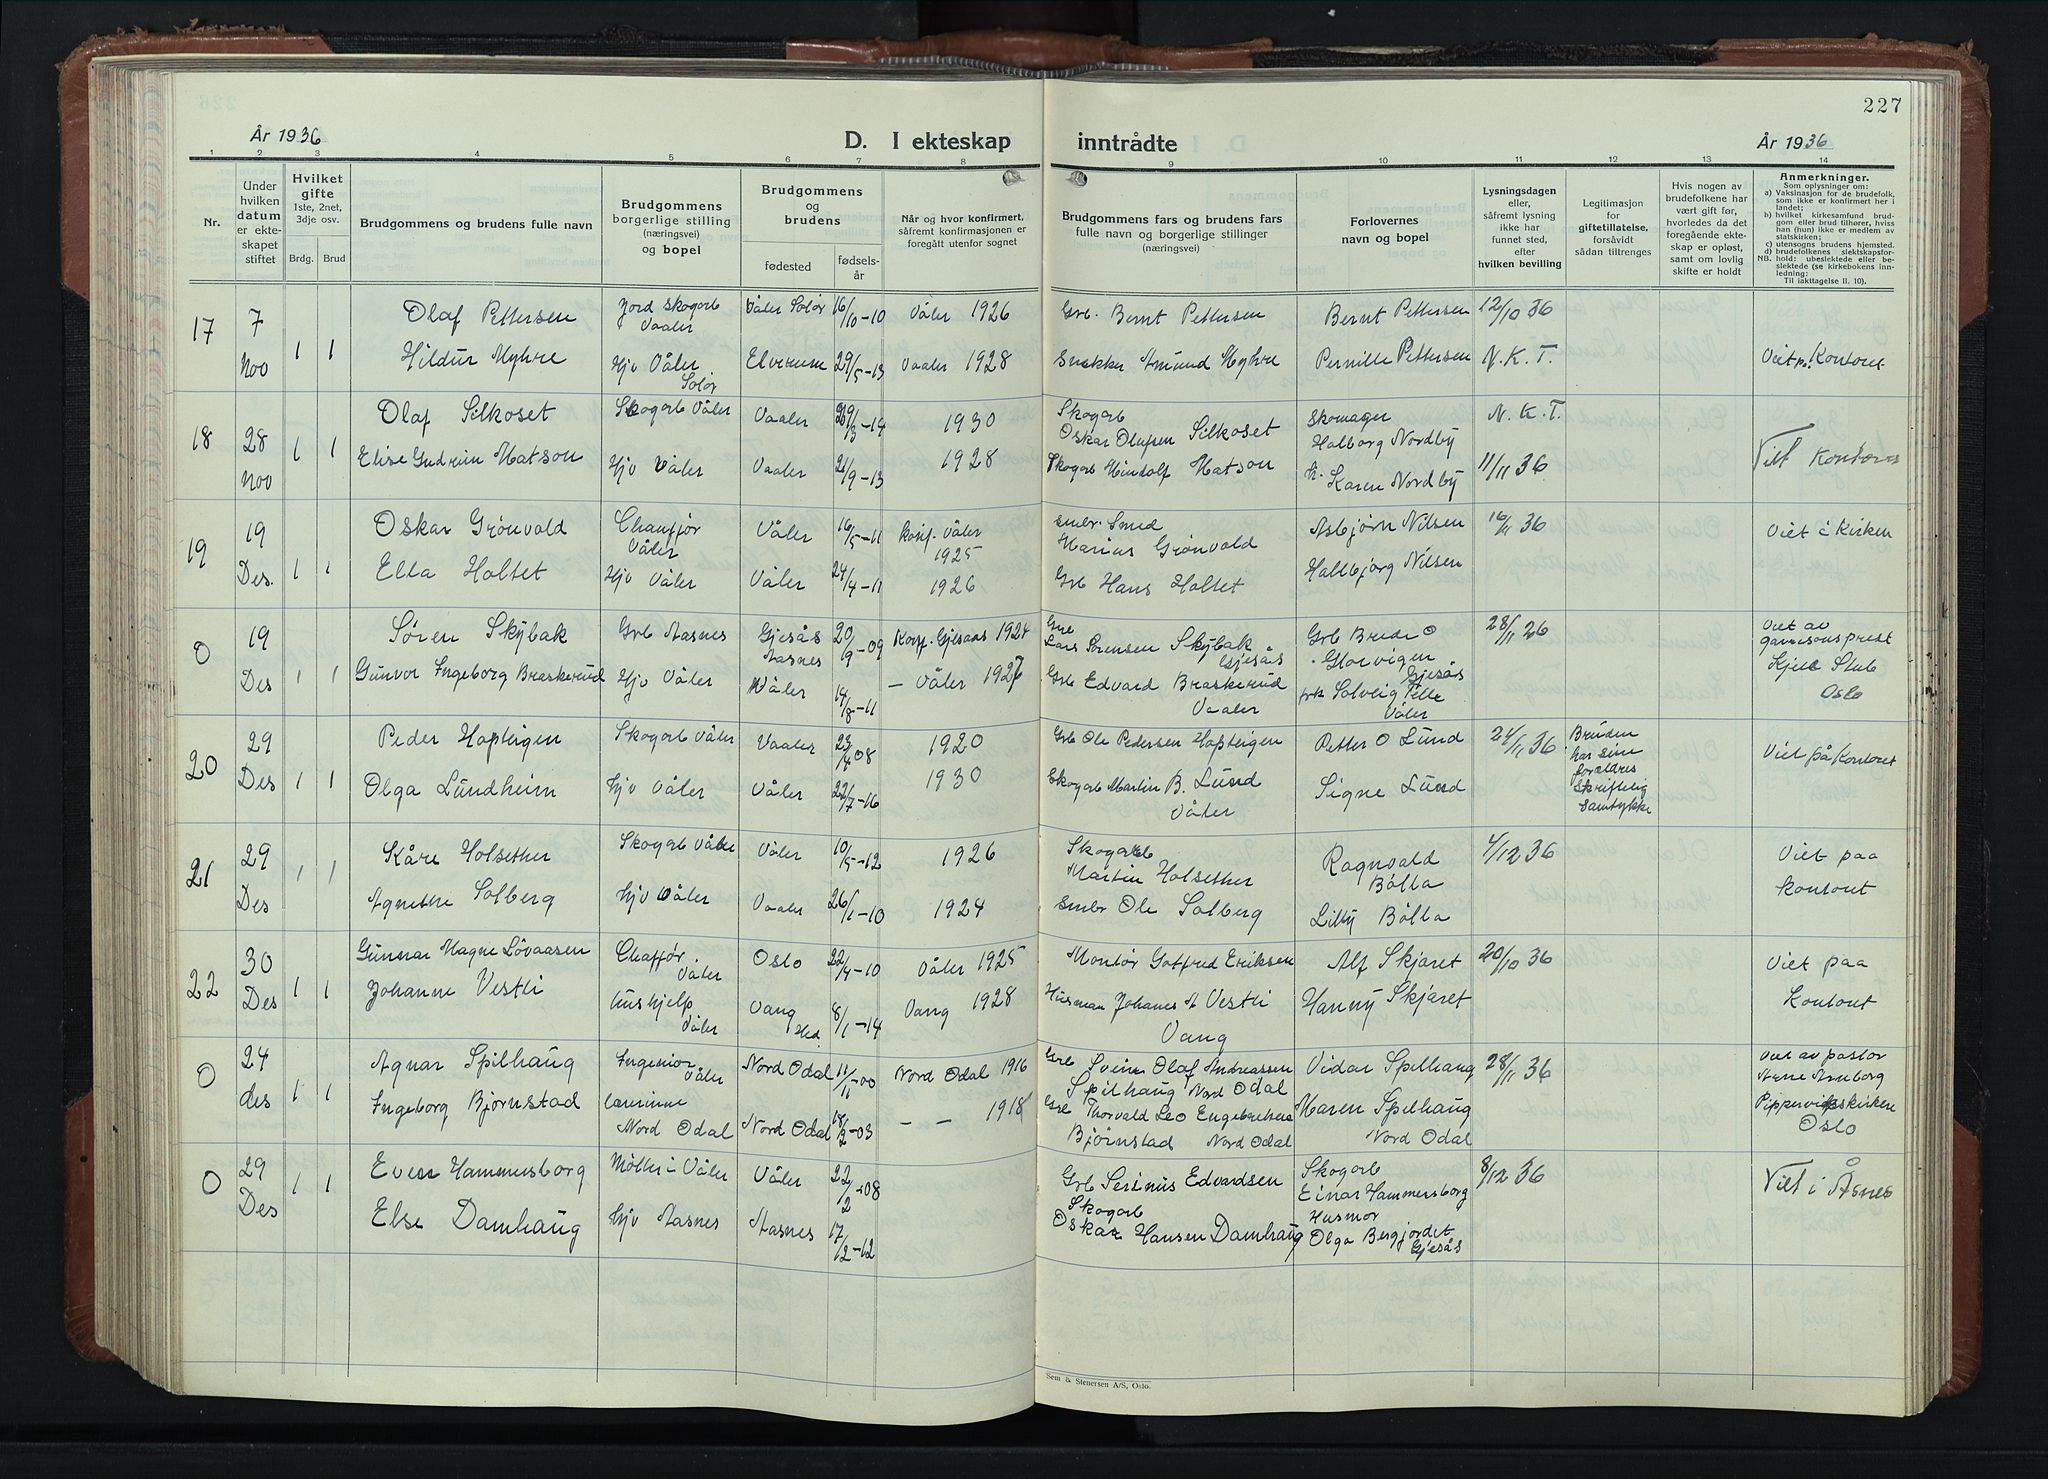 227
År 1936 D. I ekteskap inntrådte År 1936
1 2 3 4 5 6 7 8 9 10 11 12 13 14
Nr.
Under hvilken datum er ekteskapet stiftet
Hvilket gifte 1ste, 2net, 3dje osv.
Brdg. Brud
Brudgommens og brudens fulle navn
Brudgommens borgerlige stilling (næringsvei) og bopel
Brudgommens og brudens
fødested fødselsår
Når og hvor konfirmert, såfremt konfirmasjonen er foregått utenfor sognet
Brudgommens fars og brudens fars fulle navn og borgerlige stillinger (næringsvei)
Forlovernes navn og bopel
Lysningsdagen eller, såfremt lysning ikke har funnet sted, efter hvilken bevilling
Legitimasjon for giftetillatelse, forsåvidt sådan tiltrenges
Hvis nogen av brudefolkene har vært gift før, hvorledes da det foregående ekteskap er opløst, samt om lovlig skifte er holdt
Anmerkninger.
Som oplysninger om:
a) Vaksinasjon for de brudefolk, som ikke er konfirmert her i landet;
b) hvilket kirkesamfund brudgom eller brud tilhører, hviss han (hun) ikke er medlem av statskirken;
c) utensogns brudens hjemsted.
d) brudefolkenes slektskapsforhold: ubeslektede eller beslektede (se kirkebokens innledning;
NB. Til iakttagelse II. 10).
17 7 Nov 1 1
Olaf Pettersen Jord skogarb Vaaler Våler Solør 16/10-10 Våler 1926 Grb. Bernt Pettersen Bernt Pettersen 12/10 36
Hildur Myhre Hjv Våler Solør Elverum 29/5-13 Vaaler 1928 Snekker Amund Myhre Pernille Pettersen N.K.T. Viet på Kontoret
18 28 Nov 1 1
Olaf Silkoset Skogarb Våler Vaaler 29/3-14 1930 Skogarb Oskar Olufsen Silkoset Skomager Halborg Nordby N.K.T.
Elise Gudrun Matson Hjv Våler Vaaler 21/9-13 1928 Skogarb Hindolf Matson Karen Nordby 11/11 36 Viet Kontoret
19 19 Des. 1 1
Oskar Grönvold Chauffør Våler Våler 16/5-11 konf. Våler 1925 smbr. Smed Marius Grönvold Asbjørn Nilsen 16/11 36 Viet i Kirken
Ella Holtet Hjv Våler Våler 24/4-11 1926 Grb Hans Holtet Halbjørg Nilsen
0 19 Des 1 1
Søren Skybak Grb Aasnes Gjesås Aasnes 20/9-09 Konf. Gjesaas 1924 Gre Lars Sorensen Skybak Gjesås Grb Brede O Glorvigen Gjesås 28/11 26 Viet av garnisonsprest Kjell Stub Oslo
Gunvor Ingeborg Braskerud Hjv Våler Våler 14/8-11 — Våler 1927 Grb Edvard Braskerud Vaaler frk Solveig Lille Våler
20 29 Des 1 1
Peder Hapteigen Skogarb Våler Vaaler 23/4 08 1920 Grb Ole Pedersen Hapteigen Petter O Lund 24/11 36 Bruden har sine foreldres skriftelig samtykke Viet på Kontoret
Olga Lundheim Hjv Våler Våler 22/7-16 1930 Skogarb Martin B. Lund Våler Signe Lund
21 29 Des 1 1
Kåre Holsether Skogarb Våler Våler 10/5-12 1926 Skogarb Martin Holsether Ragnvald Bölla 4/12 36 Viet paa kontoret
Agnethe Solberg Hjv Våler Vaaler 26/1-10 1924 Smbr Ole Solberg Lilly Bölla
22 30 Des 1 1
Gunnar Magne Lövaasen Chaffør Våler Oslo 22/4-10 Våler 1925 Montør Gotfred Eriksen Alf Skjaret 20/10 36 Viet paa Kontoret
Johanne Vestli hushjelp Våler Vang Hed. 8/1-14 Vang 1928 Husman Johanes H Vestli Vang Hanny Skjaret
0 24 des 1 1
Agnar Spilhaug Ingeniør Våler Nord Odal 11/1-00 Nord Odal 1916 Gre Svein Olaf Andreassen Spilhaug Nord Odal Vidar Spilhaug 28/11 36 Viet av pastor Arne Arnborg Pippervigskirken Oslo
Ingeborg Bjørnstad lærerinne Nord Odal Nord Odal 18/2-03 — — 1918 Gre Thorvald Leo Engebretsen Bjørnstad Nord Odal Maren Spilhaug Nord Odal
0 29 Des 1 1
Even Hammersborg Møller i Våler Våler 22/2-08 Grb Serinus Edvardsen Skogarb Einar Hammersborg 8/12 36 Viet i Åsnes
Else Damhaug Hjv Aasnes Aasnes 17/2-12 Skogarb Oskar Hansen Damhaug Husmor Olga Bergjordet Gjesås
Sem & Stenersen A/S, Oslo.